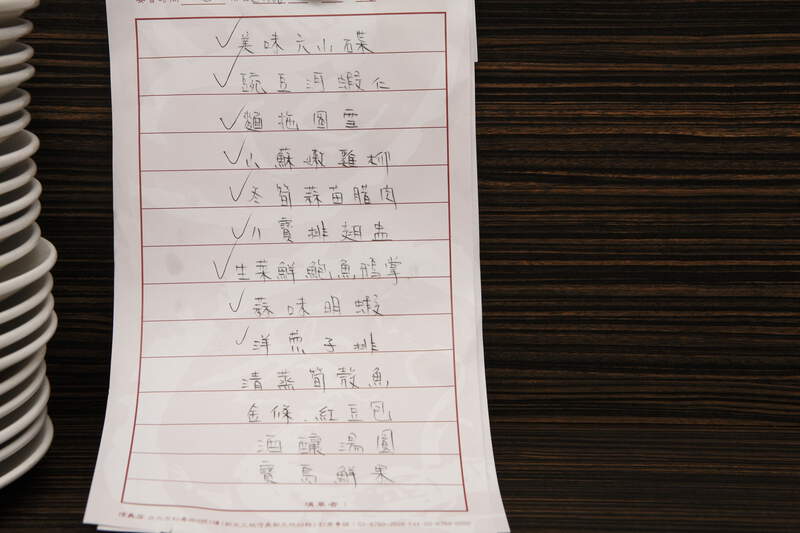 美味六小碟
豌豆河蝦仁
麵拖圓雪
小蘇嫩雞柳
冬筍蒜苗腊肉
八寶排翅盅
生菜鮮鮑魚鵝掌
蒜味明蝦
洋蔥子排
清蒸筍殼魚
金條.紅豆包
酒釀湯圓
寶島鮮果
填單者：